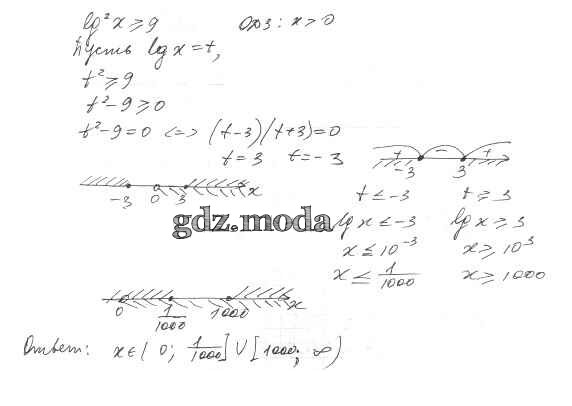 lg²x ⩾ 9 ОДЗ: x > 0
Пусть lg x = t,
t² ⩾ 9
t² - 9 ⩾ 0
t² - 9 = 0 <=> (t-3)(t+3) = 0
t = 3 t = -3
+ - +
-3 3
-3 0 3 x
t ≤ -3 t ⩾ 3
gdz.moda
lg x ≤ -3 lg x ⩾ 3
x ≤ 10⁻³ x ⩾ 10³
x ≤ 1/1000 x ⩾ 1000
0 1/1000 1000 x
Ответ: x ∈ (0; 1/1000] ∪ [1000; ∞)